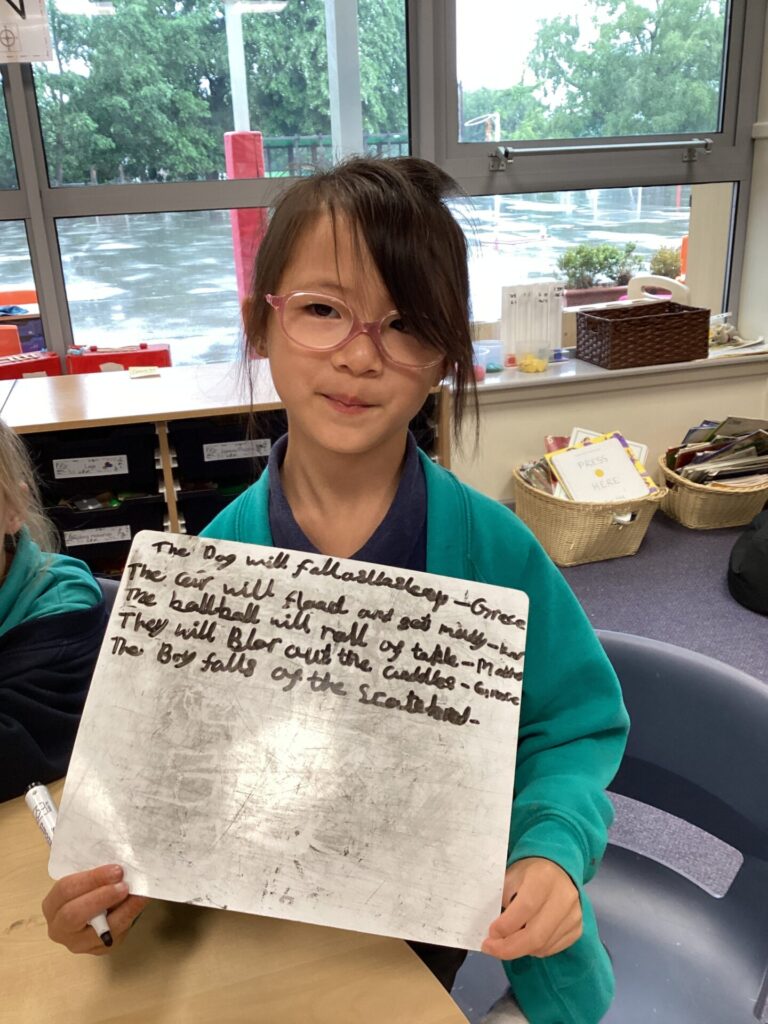 The Dog will fallasllasleep - Grace
The car will flood and get muddy -
The ballball will roll of table -
They will Blor out the candles - Grace
The Boy falls of the Scateboard -
PRESS
HERE